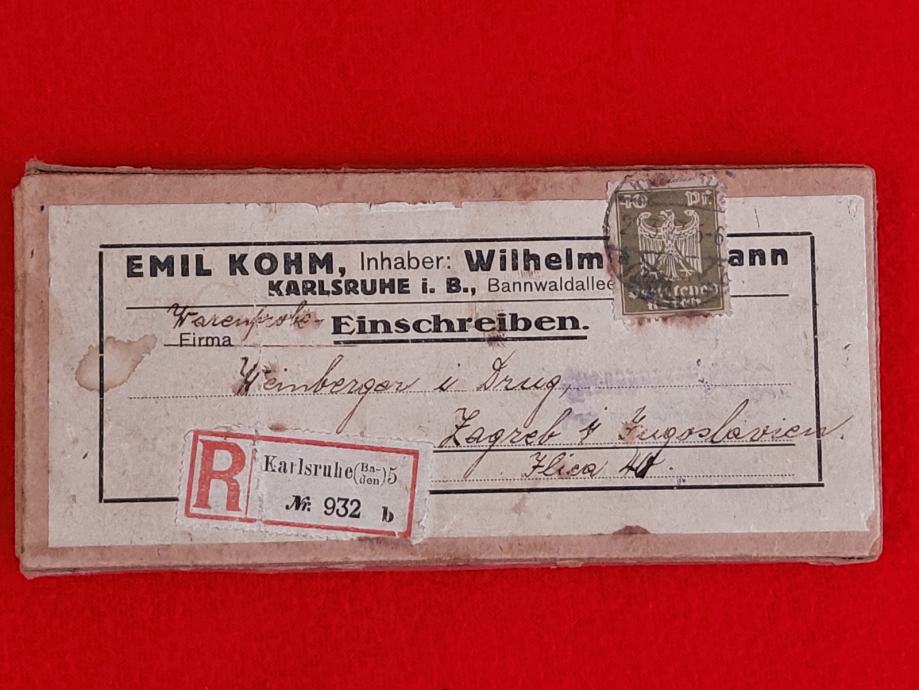 EMIL KOHM, Inhaber: Wilhelm ann
KARLSRUHE i. B., Bannwaldallee
Warenprobe
Einschreiben.
Firma
Weinberger i Drug,
Zagreb i Jugoslavien.
Ilica 40.
R Karlsruhe (Ba-den) 5
Nr. 932 b